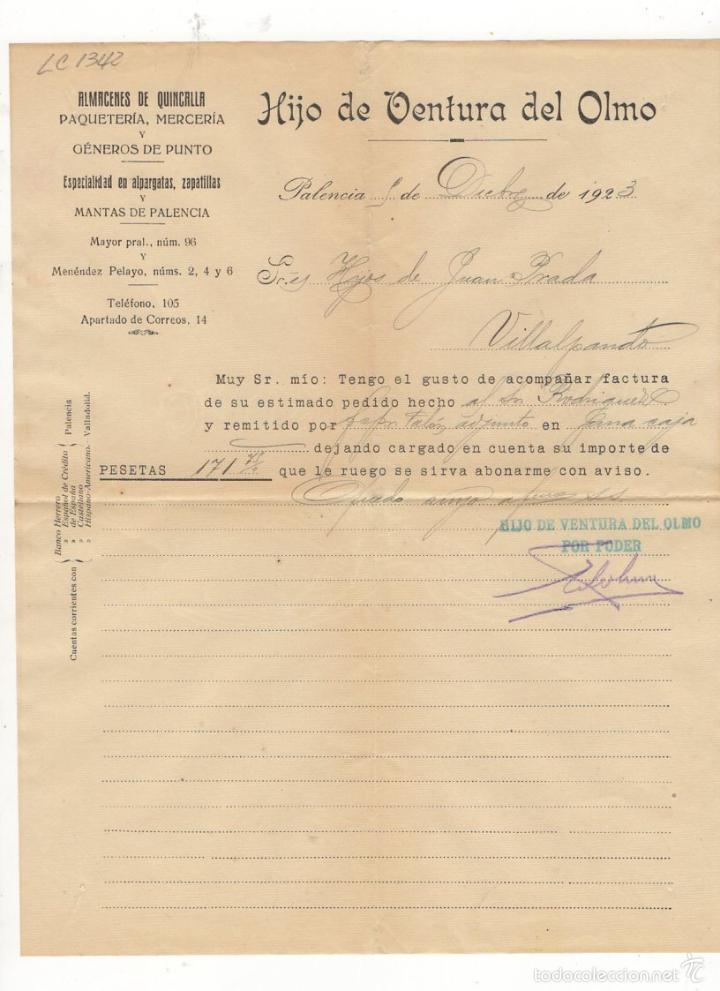 LC 1342
ALMACENES DE QUINCALLA
PAQUETERÍA, MERCERÍA
Y
GÉNEROS DE PUNTO
Especialidad en alpargatas, zapatillas
Y
MANTAS DE PALENCIA
Mayor pral., núm. 96
Y
Menéndez Pelayo, núms. 2, 4 y 6
Teléfono, 105
Apartado de Correos, 14
Hijo de Ventura del Olmo
Palencia de Dicbre de 1923
Sres Hijos de Juan Prada
Villalpando
Muy Sr. mío: Tengo el gusto de acompañar factura
de su estimado pedido hecho al Sr Rodriguez
y remitido por talón adjunto en una caja
dejando cargado en cuenta su importe de
PESETAS 171 que le ruego se sirva abonarme con aviso.
Quedo suyo
HIJO DE VENTURA DEL OLMO
POR PODER
Cuentas corrientes con
Banco Herrero
» Español de Crédito
» de España
» Castellano
» Hispano-Americano.
Palencia
Valladolid.
todocoleccion.net